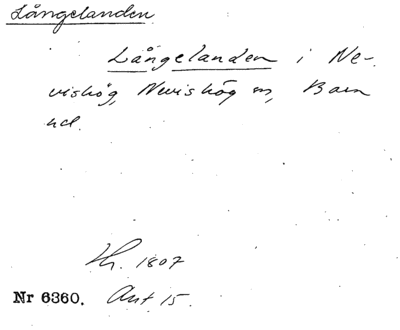 Långelanden
Långelanden i Ne-
vishög, Nevishög sn, Bara
hd.
Th. 1807
Nr 6360. Ant 15.